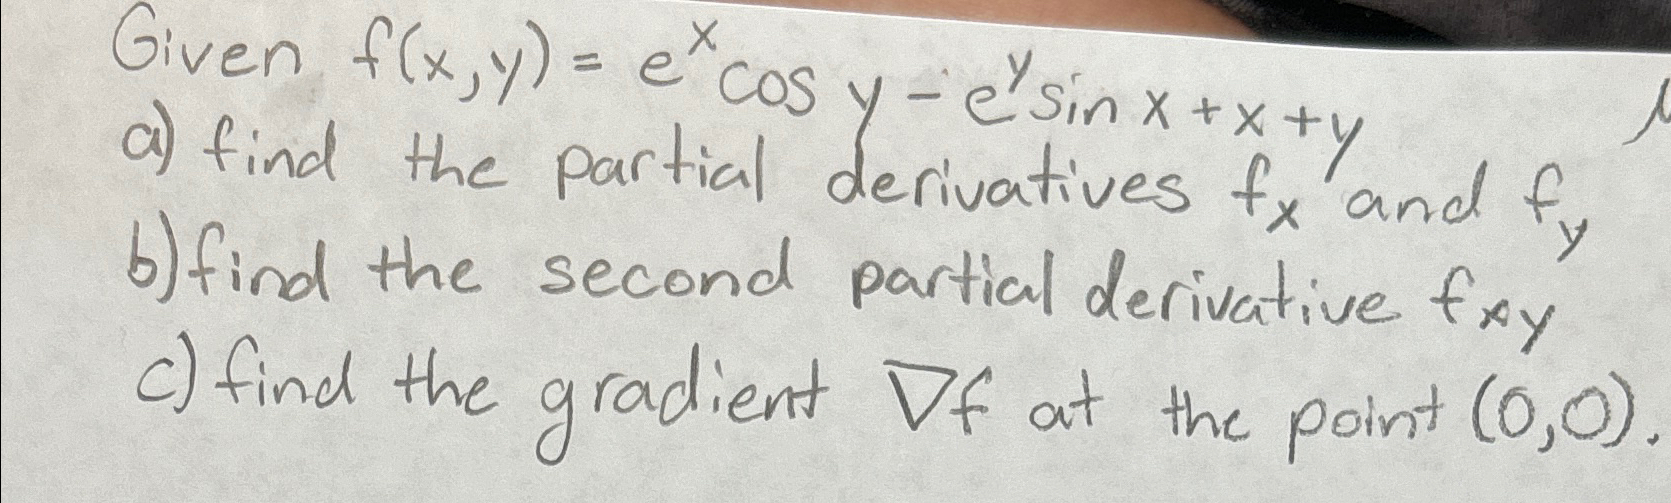 Given f(x,y) = e^x cos y - e^y sin x + x + y
a) find the partial derivatives f_x and f_y
b) find the second partial derivative f_xy
c) find the gradient ∇f at the point (0,0).